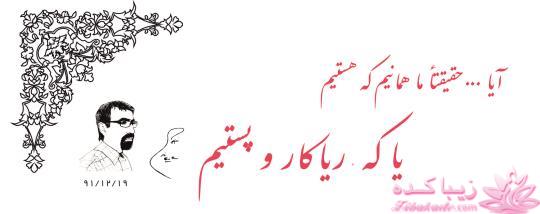 آیا ... حقیقتاً ما همانیم که هستیم
یا که ریاکار و پستیم
۹۱/۱۲/۱۹
زیباکده
Zibakade.com